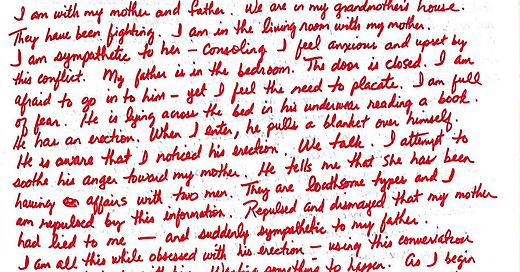 I am with my mother and father. We are in my grandmother's house.
They have been fighting. I am in the living room with my mother.
I am sympathetic to her – consoling. I feel anxious and upset by
this conflict. My father is in the bedroom. The door is closed. I am
afraid to go in to him – yet I feel the need to placate. I am full
of fear. He is lying across the bed in his underwear reading a book.
He has an erection. When I enter, he pulls a blanket over himself.
He is aware that I noticed his erection. We talk. I attempt to
soothe his anger toward my mother. He tells me that she has been
having affairs with two men. They are loathsome types and I
am repulsed by this information. Repulsed and dismayed that my mother
had lied to me — and suddenly sympathetic to my father.
I am all this while obsessed with his erection – using this conversation
with him. Wanting something to happen. As I begin